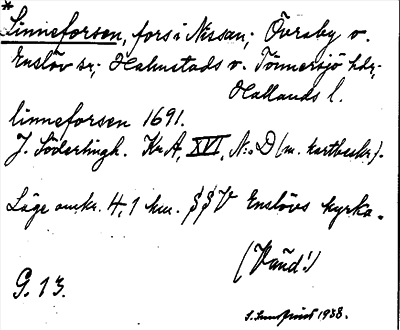 * Linneforsen, fors i Nissan; Övraby o.
Enslöv sr; Halmstads o. Tönnersjö hdr;
Hallands l.
linneforsen 1691.
J. Söderlingh. Kr A, XVI, No D (m. kartbeskr.).
Läge omkr. 4,1 km. SSV Enslövs kyrka.
(Vänd!)
G. 13.
1938.